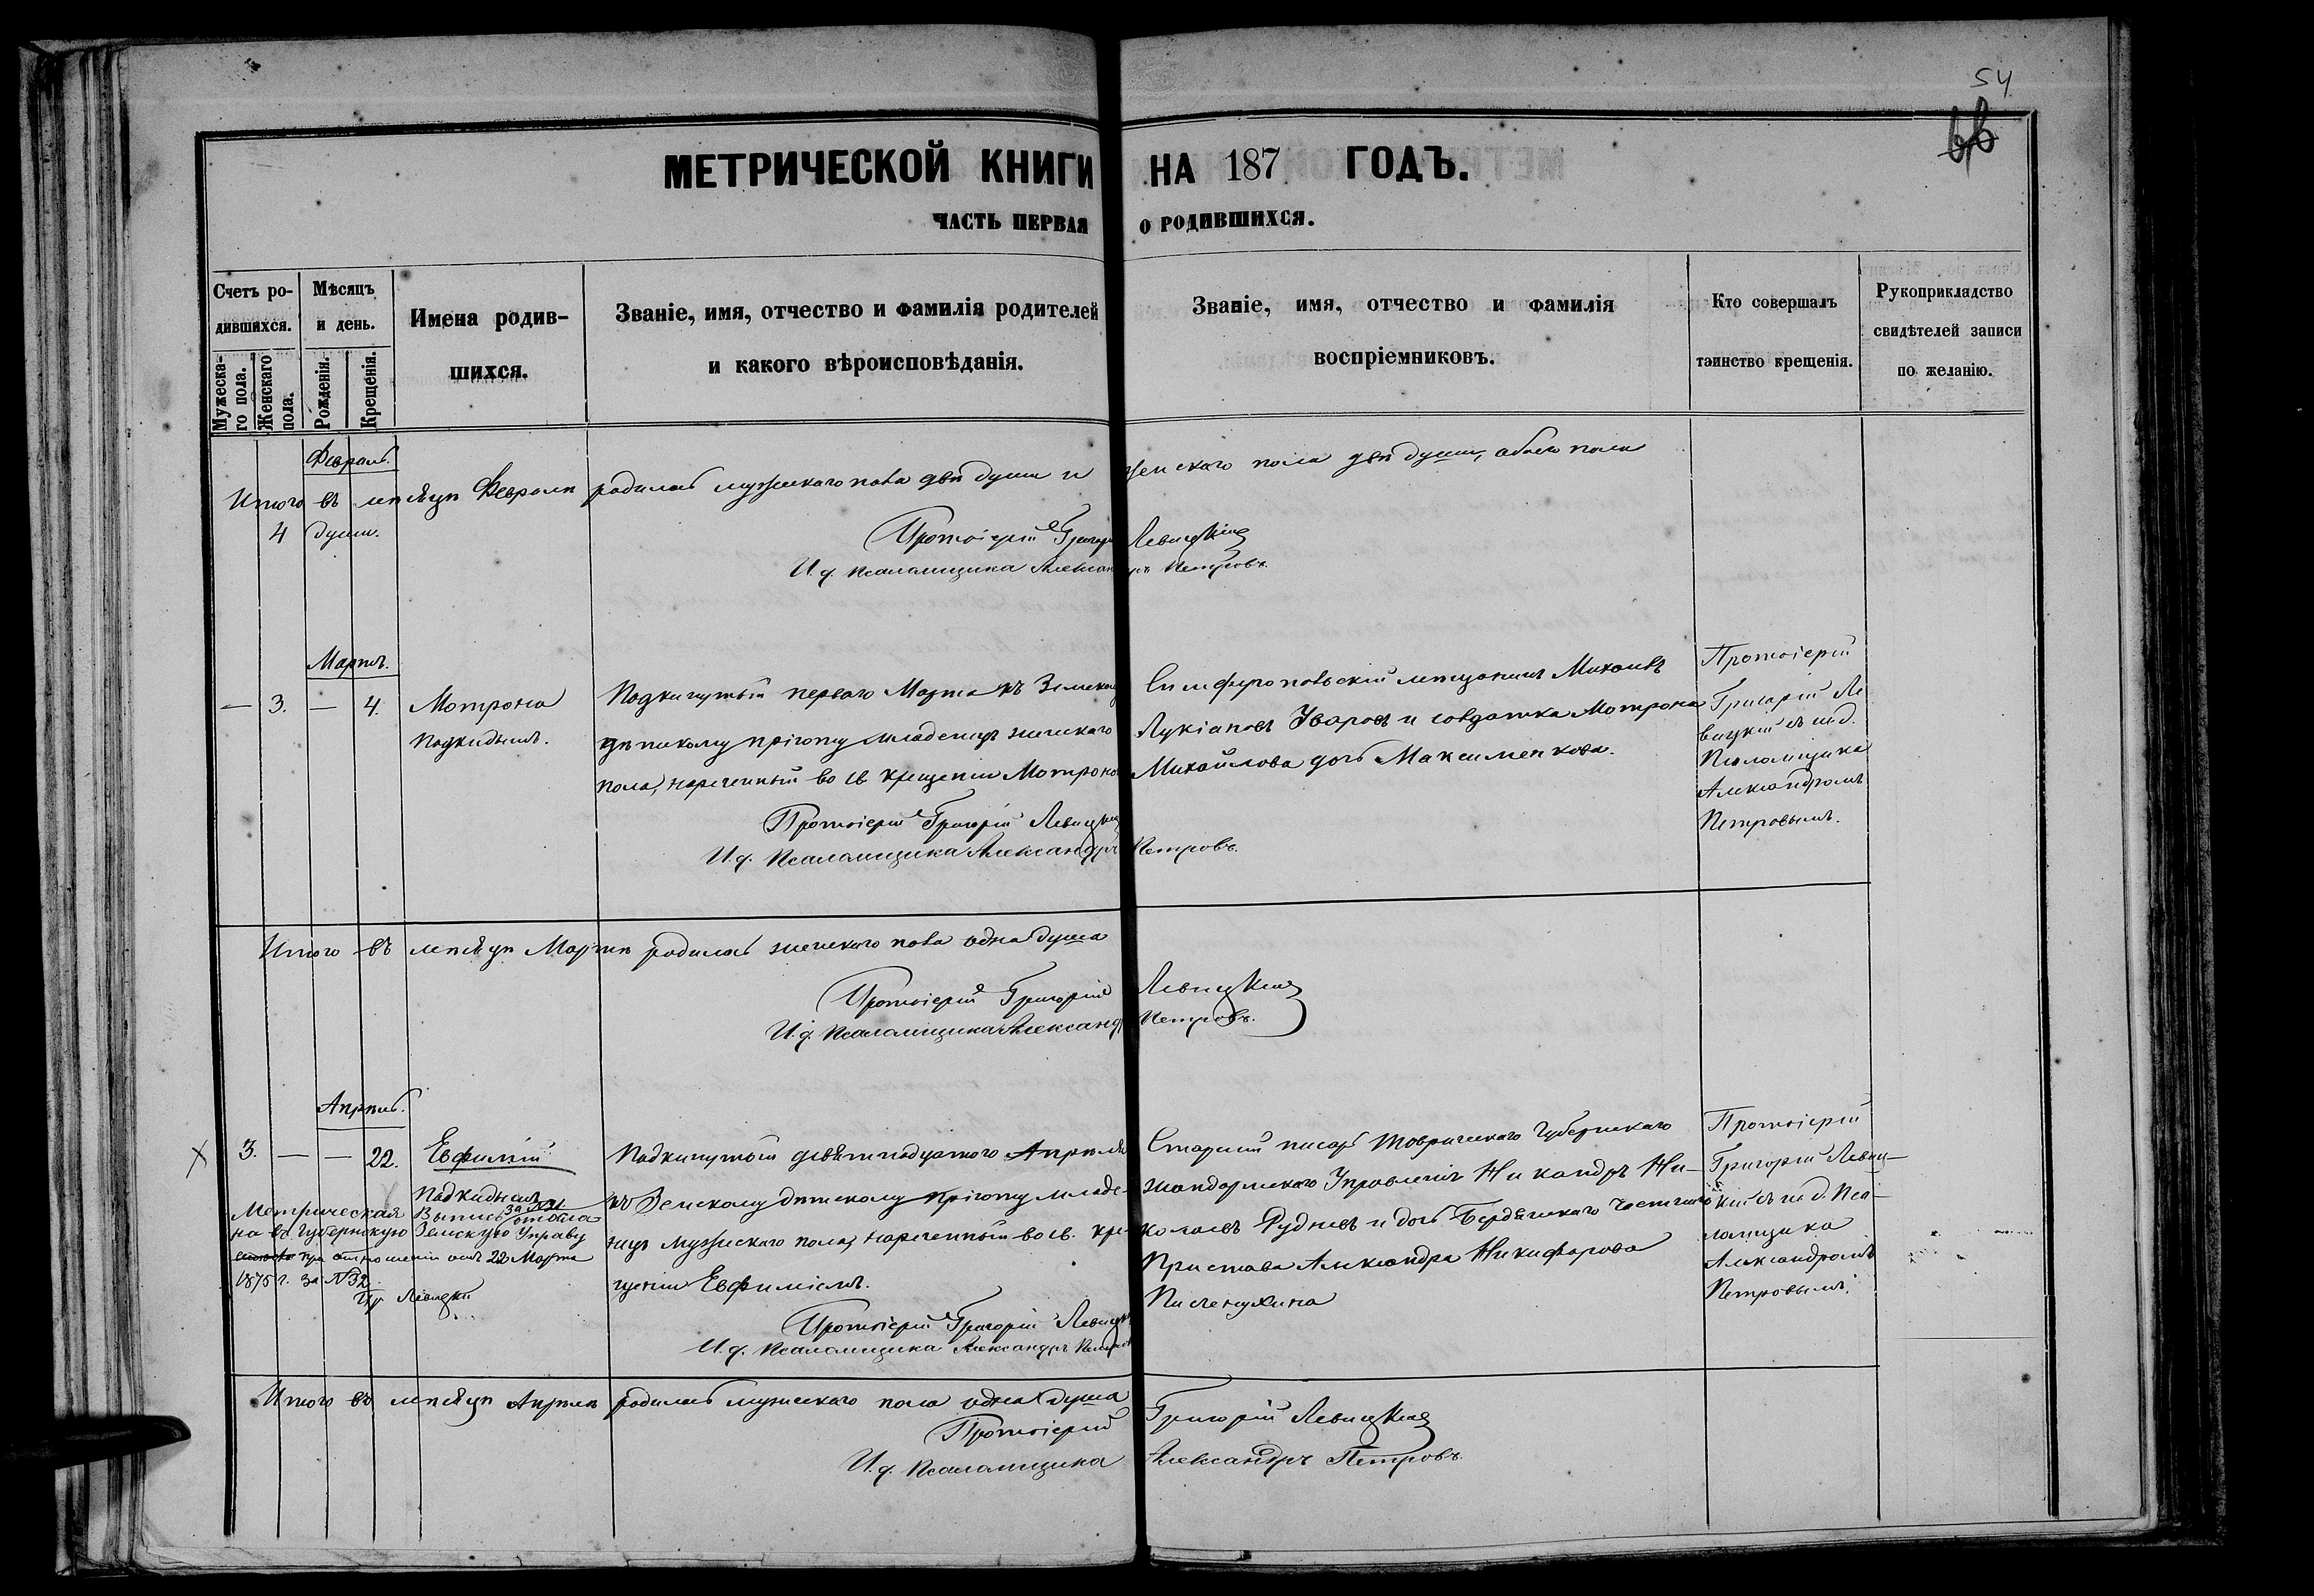 54
МЕТРИЧЕСКОЙ КНИГИ НА 187 ГОДЪ.
ЧАСТЬ ПЕРВАЯ О РОДИВШИХСЯ.
Счетъ ро-
дившихся.
Мужеска-
го пола.
Женскаго
пола.
Мѣсяцъ
и день.
Рожденія.
Крещенія.
Имена родив-
шихся.
Званіе, имя, отчество и фамилія родителей
и какого вѣроисповѣданія.
Званіе, имя, отчество и фамилія
воспріемниковъ.
Кто совершалъ
таинство крещенія.
Рукоприкладство
свидѣтелей записи
по желанію.
Февраль.
Итого въ мѣсяцѣ Февралѣ родилось мужескаго пола двѣ души и женскаго пола двѣ души, обоего пола
4 души.
Протоіерей Григорій Левицкій
И. д. Псаломщика Александръ Петровъ.
Мартъ.
— 3. — 4.
Мотрона
подкидышъ.
Подкинутый перваго Марта къ Земскому
дѣтскому пріюту младенецъ женскаго
пола, нареченный во св. крещеніи Мотроною
Протоіерей Григорій Левицкій
И. д. Псаломщика Александръ Петровъ.
Симферопольскій мещанинъ Михаилъ
Лукіановъ Уваровъ и солдатка Мотрона
Михайлова дочь Максименкова.
Протоіерей
Григорій Ле
вицкій съ и. д.
Псаломщика
Александромъ
Петровымъ.
Итого въ мѣсяцѣ Мартѣ родилось женскаго пола одна душа
Протоіерей Григорій Левицкій
И. д. Псаломщика Александръ Петровъ.
Апрѣль.
3. — — 22.
Евфимій
Подкидышъ
Метрическая Выпись за №31 отосла-
на въ Губернскую Земскую Управу
при отношеніи отъ 22 Марта
1875 г. за №32.
Пр Левицкій
Подкинутый девятнадцатаго Апрѣля
къ Земскому дѣтскому пріюту младе-
нецъ мужескаго пола, нареченный во св. кре-
щеніи Евфиміемъ.
Протоіерей Григорій Левицкій
И. д. Псаломщика Александръ Петровъ
Старшій писарь Таврическаго Губернскаго
жандармскаго Управленія Никандръ Ни-
колаевъ Рудневъ и дочь Бердянскаго Частнаго
Пристава Александра Никифорова
Протоіерей
Григорій Левиц-
кій съ и. д. Пса-
ломщика
Александромъ
Петровымъ.
Итого въ мѣсяцѣ Апрѣлѣ родилось мужескаго пола одна душа
Протоіерей Григорій Левицкій
И. д. Псаломщика Александръ Петровъ.